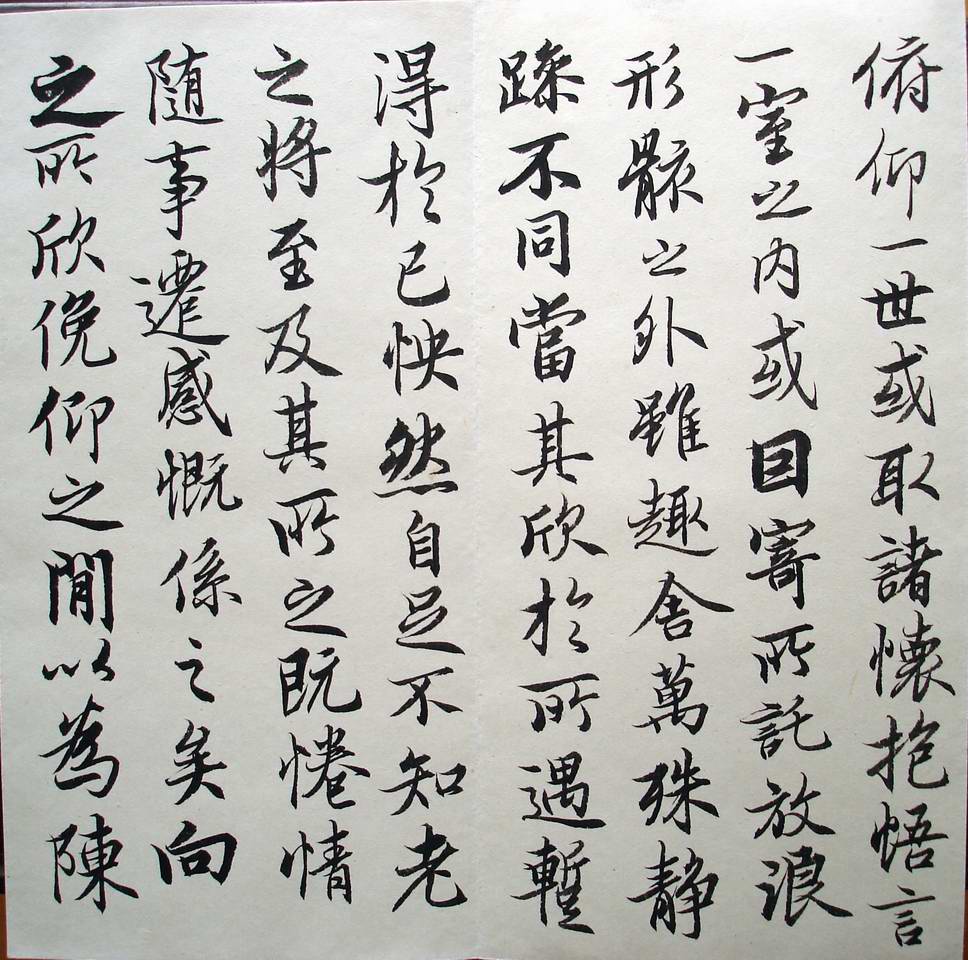 俯仰一世或取諸懷抱悟言
一室之内或因寄所託放浪
形骸之外雖趣舍萬殊静
躁不同當其欣於所遇暫
得於己怏然自足不知老
之將至及其所之既惓情
隨事遷感慨係之矣向
之所欣俛仰之閒以為陳